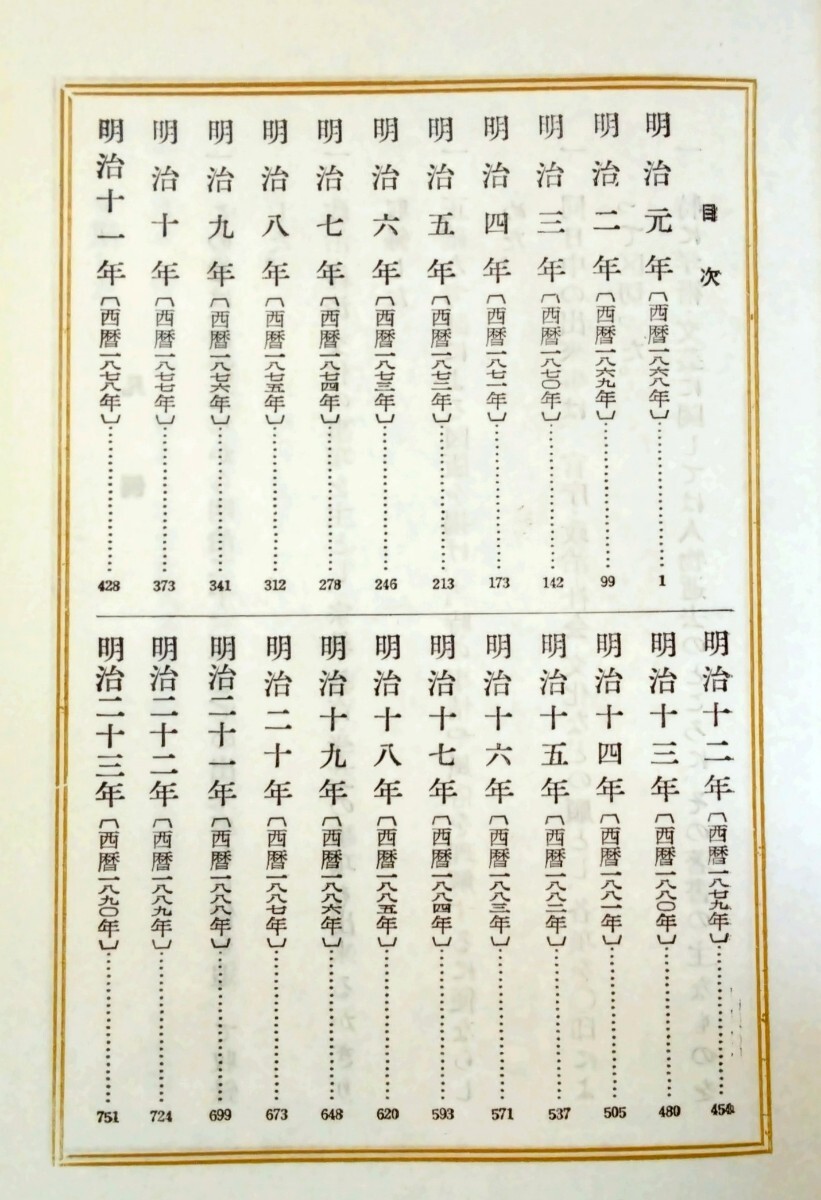 目次
明治元年〔西暦一八六八年〕……………………1
明治二年〔西暦一八六九年〕……………………99
明治三年〔西暦一八七〇年〕……………………142
明治四年〔西暦一八七一年〕……………………173
明治五年〔西暦一八七二年〕……………………213
明治六年〔西暦一八七三年〕……………………246
明治七年〔西暦一八七四年〕……………………278
明治八年〔西暦一八七五年〕……………………312
明治九年〔西暦一八七六年〕……………………341
明治十年〔西暦一八七七年〕……………………373
明治十一年〔西暦一八七八年〕……………………428
明治十二年〔西暦一八七九年〕……………………454
明治十三年〔西暦一八八〇年〕……………………480
明治十四年〔西暦一八八一年〕……………………505
明治十五年〔西暦一八八二年〕……………………537
明治十六年〔西暦一八八三年〕……………………571
明治十七年〔西暦一八八四年〕……………………593
明治十八年〔西暦一八八五年〕……………………620
明治十九年〔西暦一八八六年〕……………………648
明治二十年〔西暦一八八七年〕……………………673
明治二十一年〔西暦一八八八年〕……………………699
明治二十二年〔西暦一八八九年〕……………………724
明治二十三年〔西暦一八九〇年〕……………………751